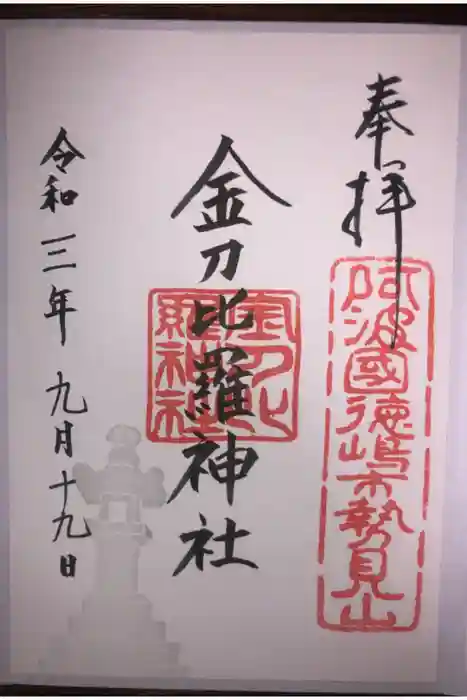 奉拝
阿波國徳嶋市勢見山
金刀比羅神社
金刀比羅神社
令和三年九月十九日